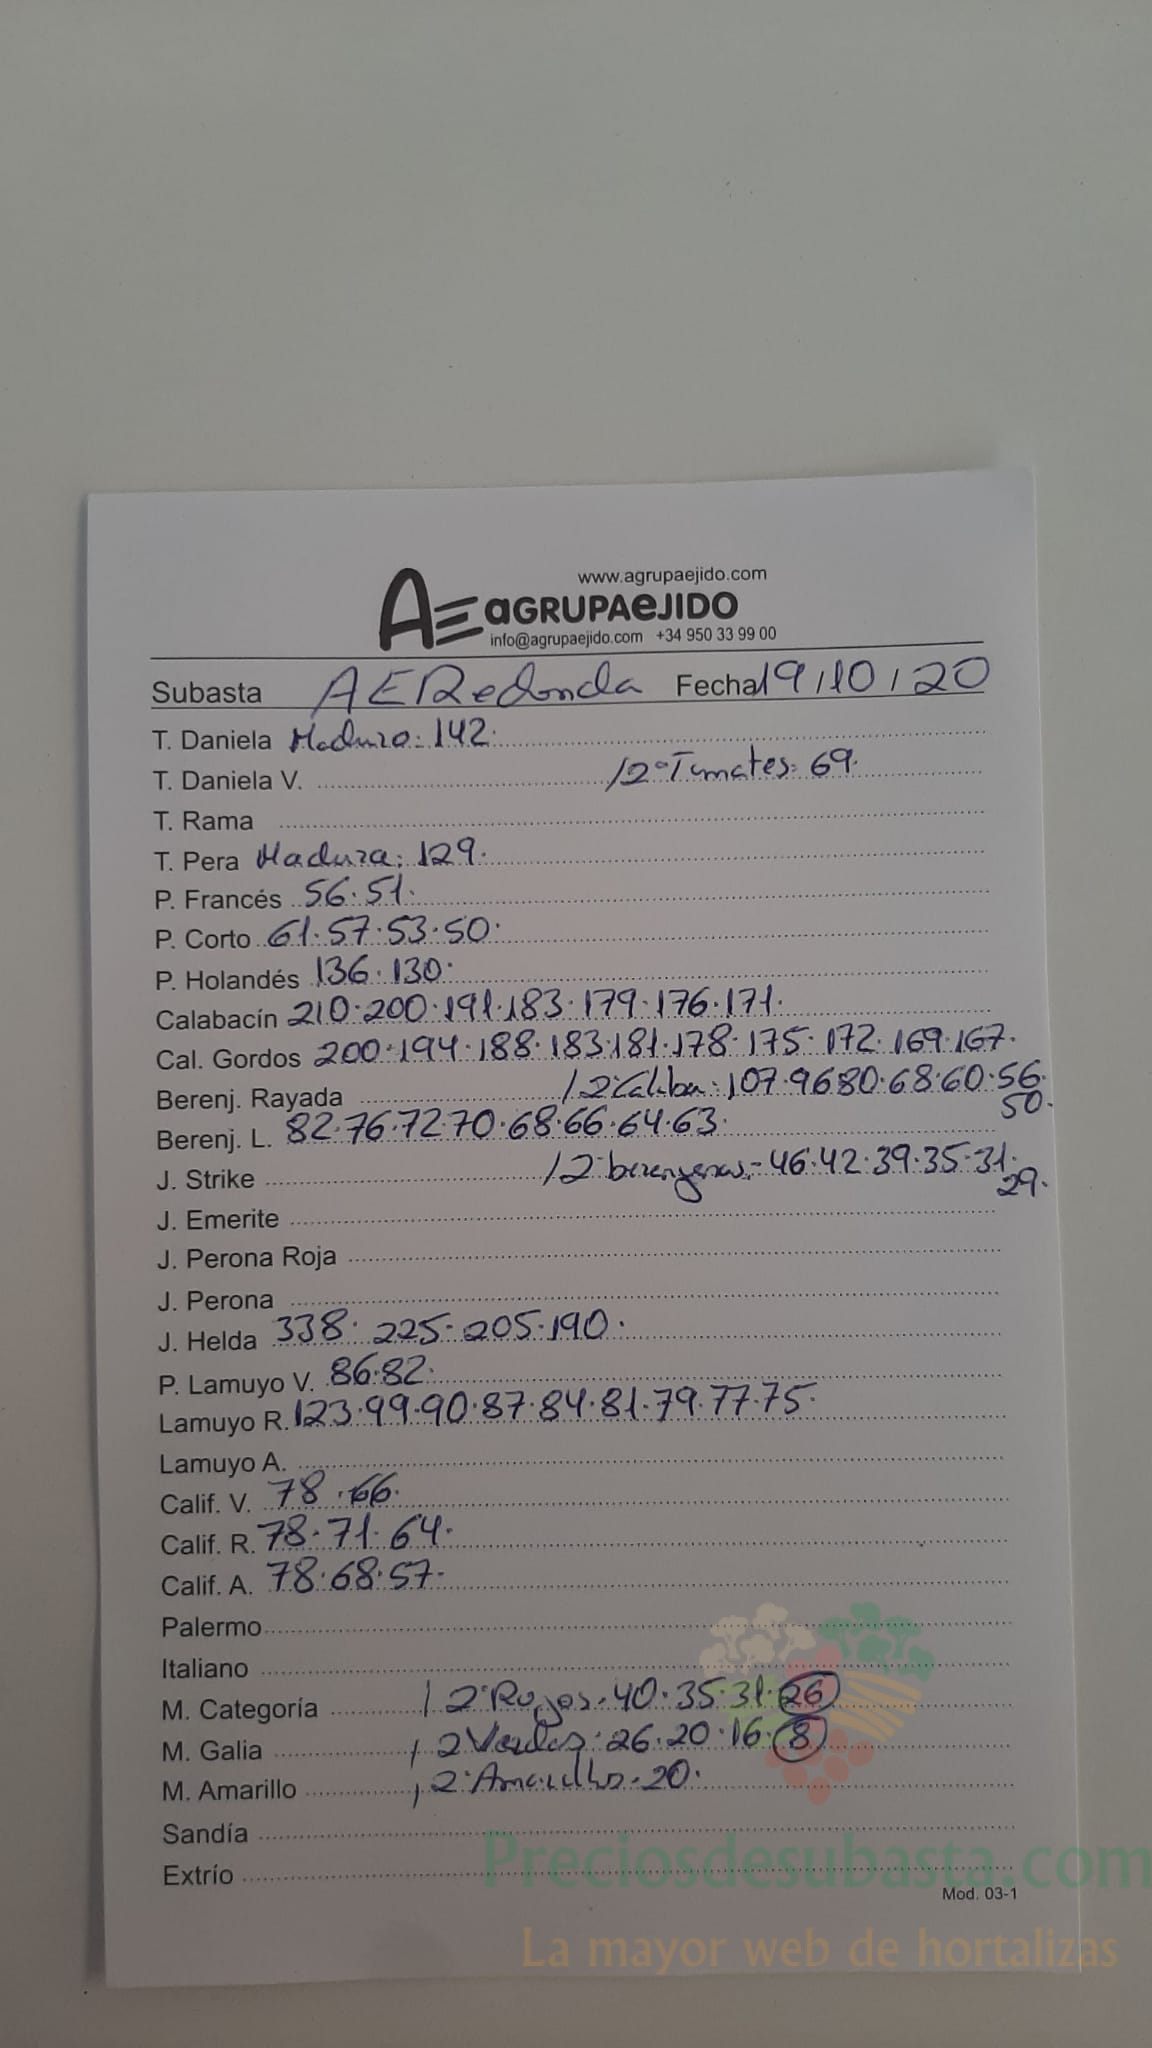 www.agrupaejido.com
AE aGRUPAeJIDO
info@agrupaejido.com +34 950 33 99 00
Subasta AERedonda Fecha 19/10/20
T. Daniela Maduro: 142.
T. Daniela V. / 2ª Tomates: 69.
T. Rama
T. Pera Madura: 129.
P. Francés 56.51.
P. Corto 61.57.53.50.
P. Holandés 136.130.
Calabacín 210.200.191.183.179.176.171.
Cal. Gordos 200.194.188.183.181.178.175.172.169.167.
Berenj. Rayada / 2ª Caliba: 107.96.80.68.60.56.
50.
Berenj. L. 82.76.72.70.68.66.64.63.
J. Strike / 2ª berenjenas.- 46.42.39.35.31.
29.
J. Emerite
J. Perona Roja
J. Perona
J. Helda 338. 225.205.190.
P. Lamuyo V. 86.82.
Lamuyo R. 123.99.90.87.84.81.79.77.75.
Lamuyo A.
Calif. V. 78.66.
Calif. R. 78.71.64.
Calif. A. 78.68.57.
Palermo
Italiano
M. Categoría / 2ª Rojos.40.35.31.26
M. Galia / 2 Verdes.26.20.16.8
M. Amarillo / 2ª Amarillos.20.
Sandía
Extrío
Preciosdesubasta.com
Mod. 03-1
La mayor web de hortalizas